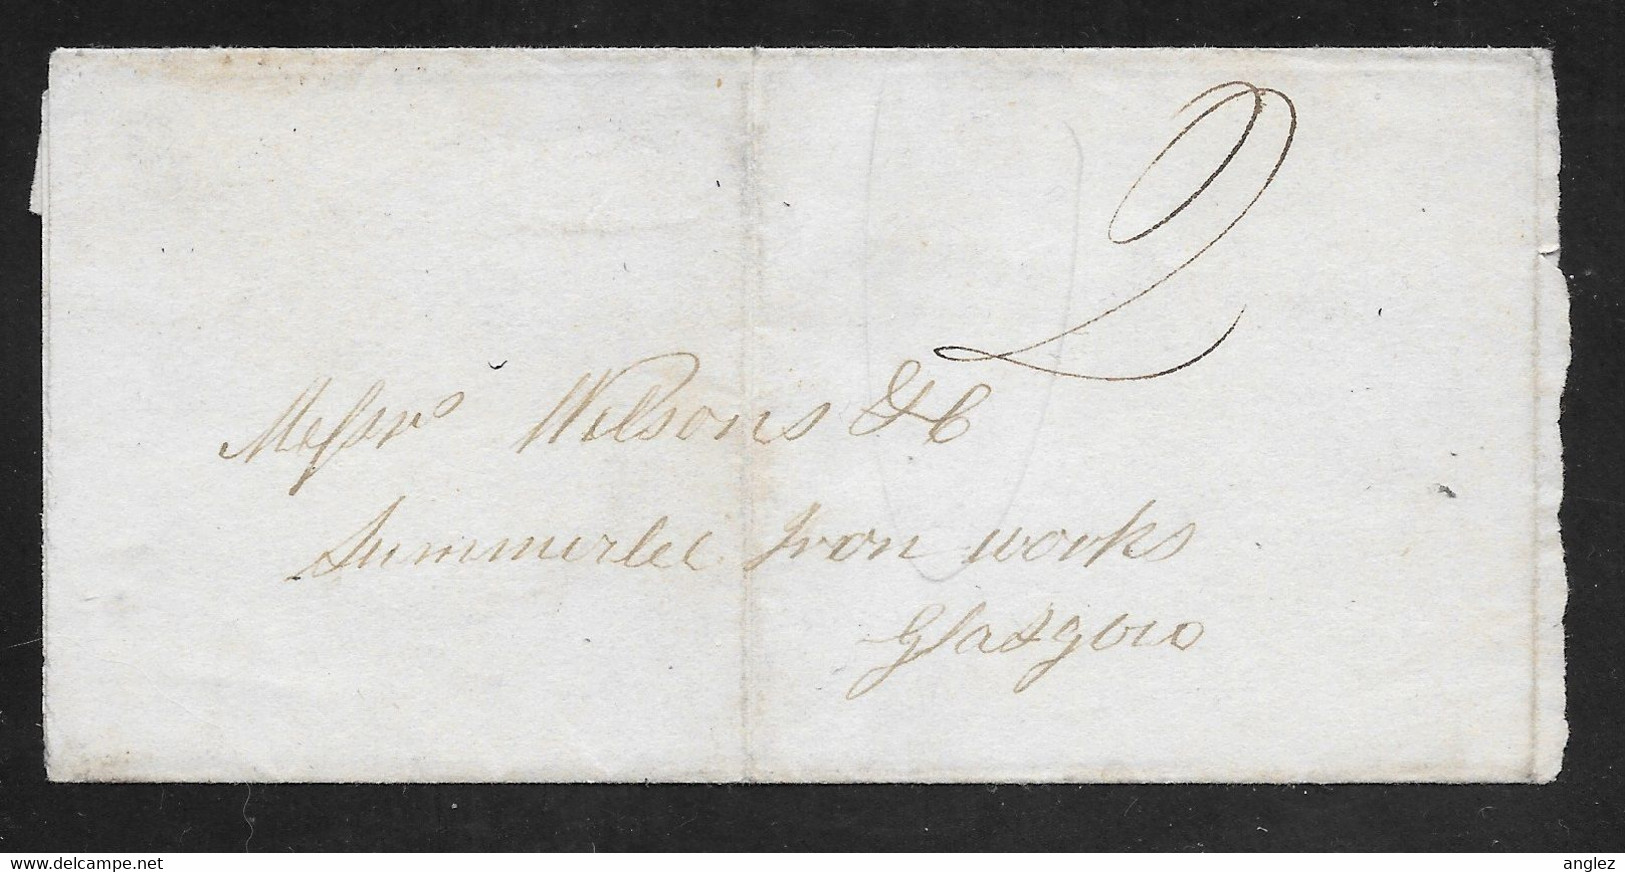 2
Messrs Wilsons & Co
Summerlee Iron works
Glasgow
www.delcampe.net
anglez